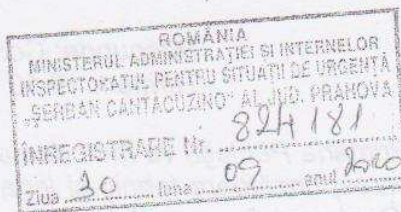 ROMÂNIA
MINISTERUL ADMINISTRAȚIEI SI INTERNELOR
INSPECTORATUL PENTRU SITUAȚII DE URGENȚĂ
„ȘERBAN CANTACUZINO" AL JUD. PRAHOVA
ÎNREGISTRARE Nr. 824181
Ziua 30 luna 09 anul 2010